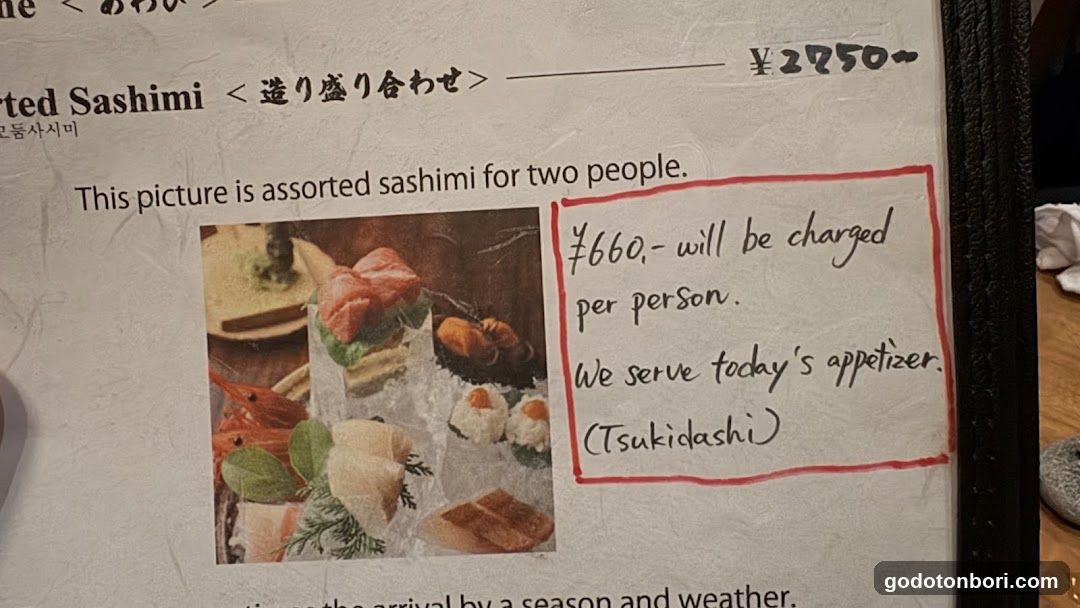 < あわび >
ted Sashimi < 造り盛り合わせ > ¥2750~
모둠사시미
This picture is assorted sashimi for two people.
¥660.- will be charged
per person.
We serve today's appetizer.
(Tsukidashi)
the arrival by a season and weather.
godotonbori.com